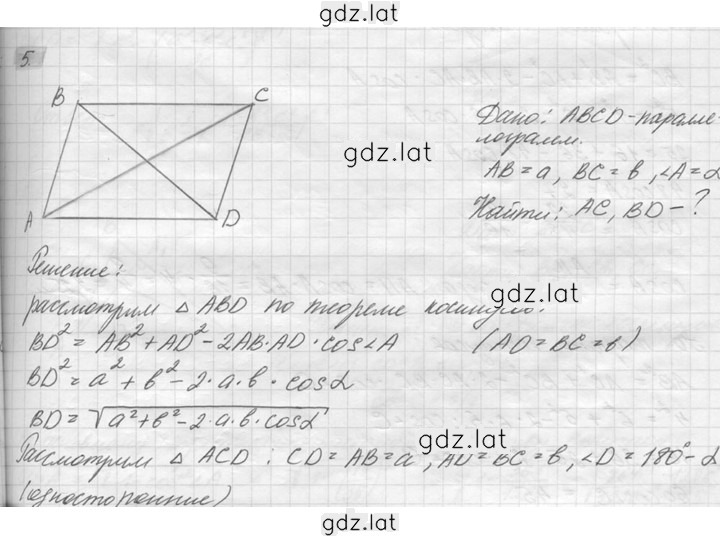 gdz.lat
5.
B C
A D
gdz.lat
Дано: ABCD - паралле-
лограмм.
AB = a, BC = в, ∠A = α
Найти: AC, BD - ?
Решение:
gdz.lat
рассмотрим △ ABD по теореме косинусов:
BD² = AB² + AD² - 2AB·AD·cos∠A (AD = BC = в)
BD² = a² + в² - 2·a·в·cosα
BD = √a² + в² - 2·a·в·cosα
gdz.lat
Рассмотрим △ ACD : CD = AB = a, AD = BC = в, ∠D = 180° - α
(односторонние)
gdz.lat